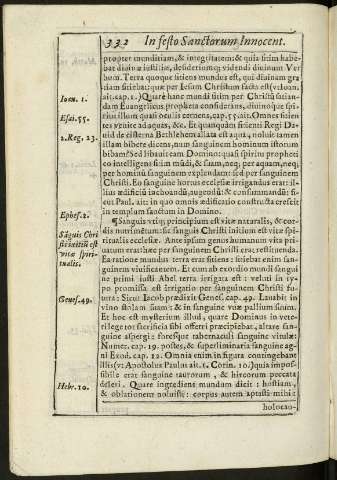 332 In festo Sanctorum Innocent.
propter munditiam, & integritatem: & quia sitim habe-
bat diuinæ iustitiæ, desideriumq; videndi diuinum Ver
bum. Terra quoque sitiens mundus est, qui diuinam gra
tiam sitiebat: quæ per Iesum Christum facta est (vt Ioan.
Ioan. 1.
ait, cap. 1.) Quare hanc mundi sitim per Christū sitian-
dam Euangelicus propheta considerans, diuinoque spi-
ritu illum quasi oculis cernens, cap. 55. ait. Omnes sitien
Esai. 55.
tes venite ad aquas, &c. Et quamquam sitienti Regi Da-
2. Reg. 23.
uid de cisterna Bethlehem allata est aqua, noluit tamen
illam bibere dicens, num sanguinem hominum istorum
bibam? Sed libauit eam Domino: quasi spiritu propheti
co intelligens sitim mūdi, & suam, neq; per aquam, neq;
per hominū sanguinem explendam: sed per sanguinem
Christi. Eo sanguine hortus ecclesiæ irrigandus erat: il-
lius ædificiū inchoandū, augendū & consummandū: si-
cut Paul. ait: in quo omnis ædificatio constructa crescit
Ephes. 2.
in templum sanctum in Domino.
¶ Sanguis vtiq; principium est vitæ naturalis, & cor-
Sāguis Chri
dis nutrimētum: sic sanguis Christi initium est vitæ spi-
sti initiū est
ritualis ecclesiæ. Ante ipsum genus humanum vita pri-
vitæ spiri-
uatum erat: hæc per sanguinem Christi erat restituenda.
tualis.
Ea ratione mundus terra erat sitiens: sitiebat enim san-
guinem viuificantem. Et cum ab exordio mundi sangui
ne primi iusti Abel terra irrigata est: veluti in ty-
po promissa est irrigatio per sanguinem Christi fu-
tura: Sicut Iacob prædixit Genes. cap. 49. Lauabit in
Genes. 49.
vino stolam suam: & in sanguine vuæ pallium suum.
Et hoc est mysterium illud, quare Dominus in vete-
ri lege tot sacrificia sibi offerri præcipiebat, altare san-
guine aspergi: foresque tabernaculi sanguine vitulæ:
Numer. cap. 19. postes, & superliminaria sanguine ag-
ni Exod. cap. 12. Omnia enim in figura contingebant
illis (vt Apostolus Paulus ait. 1. Corin. 10.) quia impos-
sibile erat sanguine taurorum, & hircorum peccata
deleri. Quare ingrediens mundum dicit: hostiam,
Hebr. 10.
& oblationem noluisti: corpus autem aptasti mihi:
holocau-